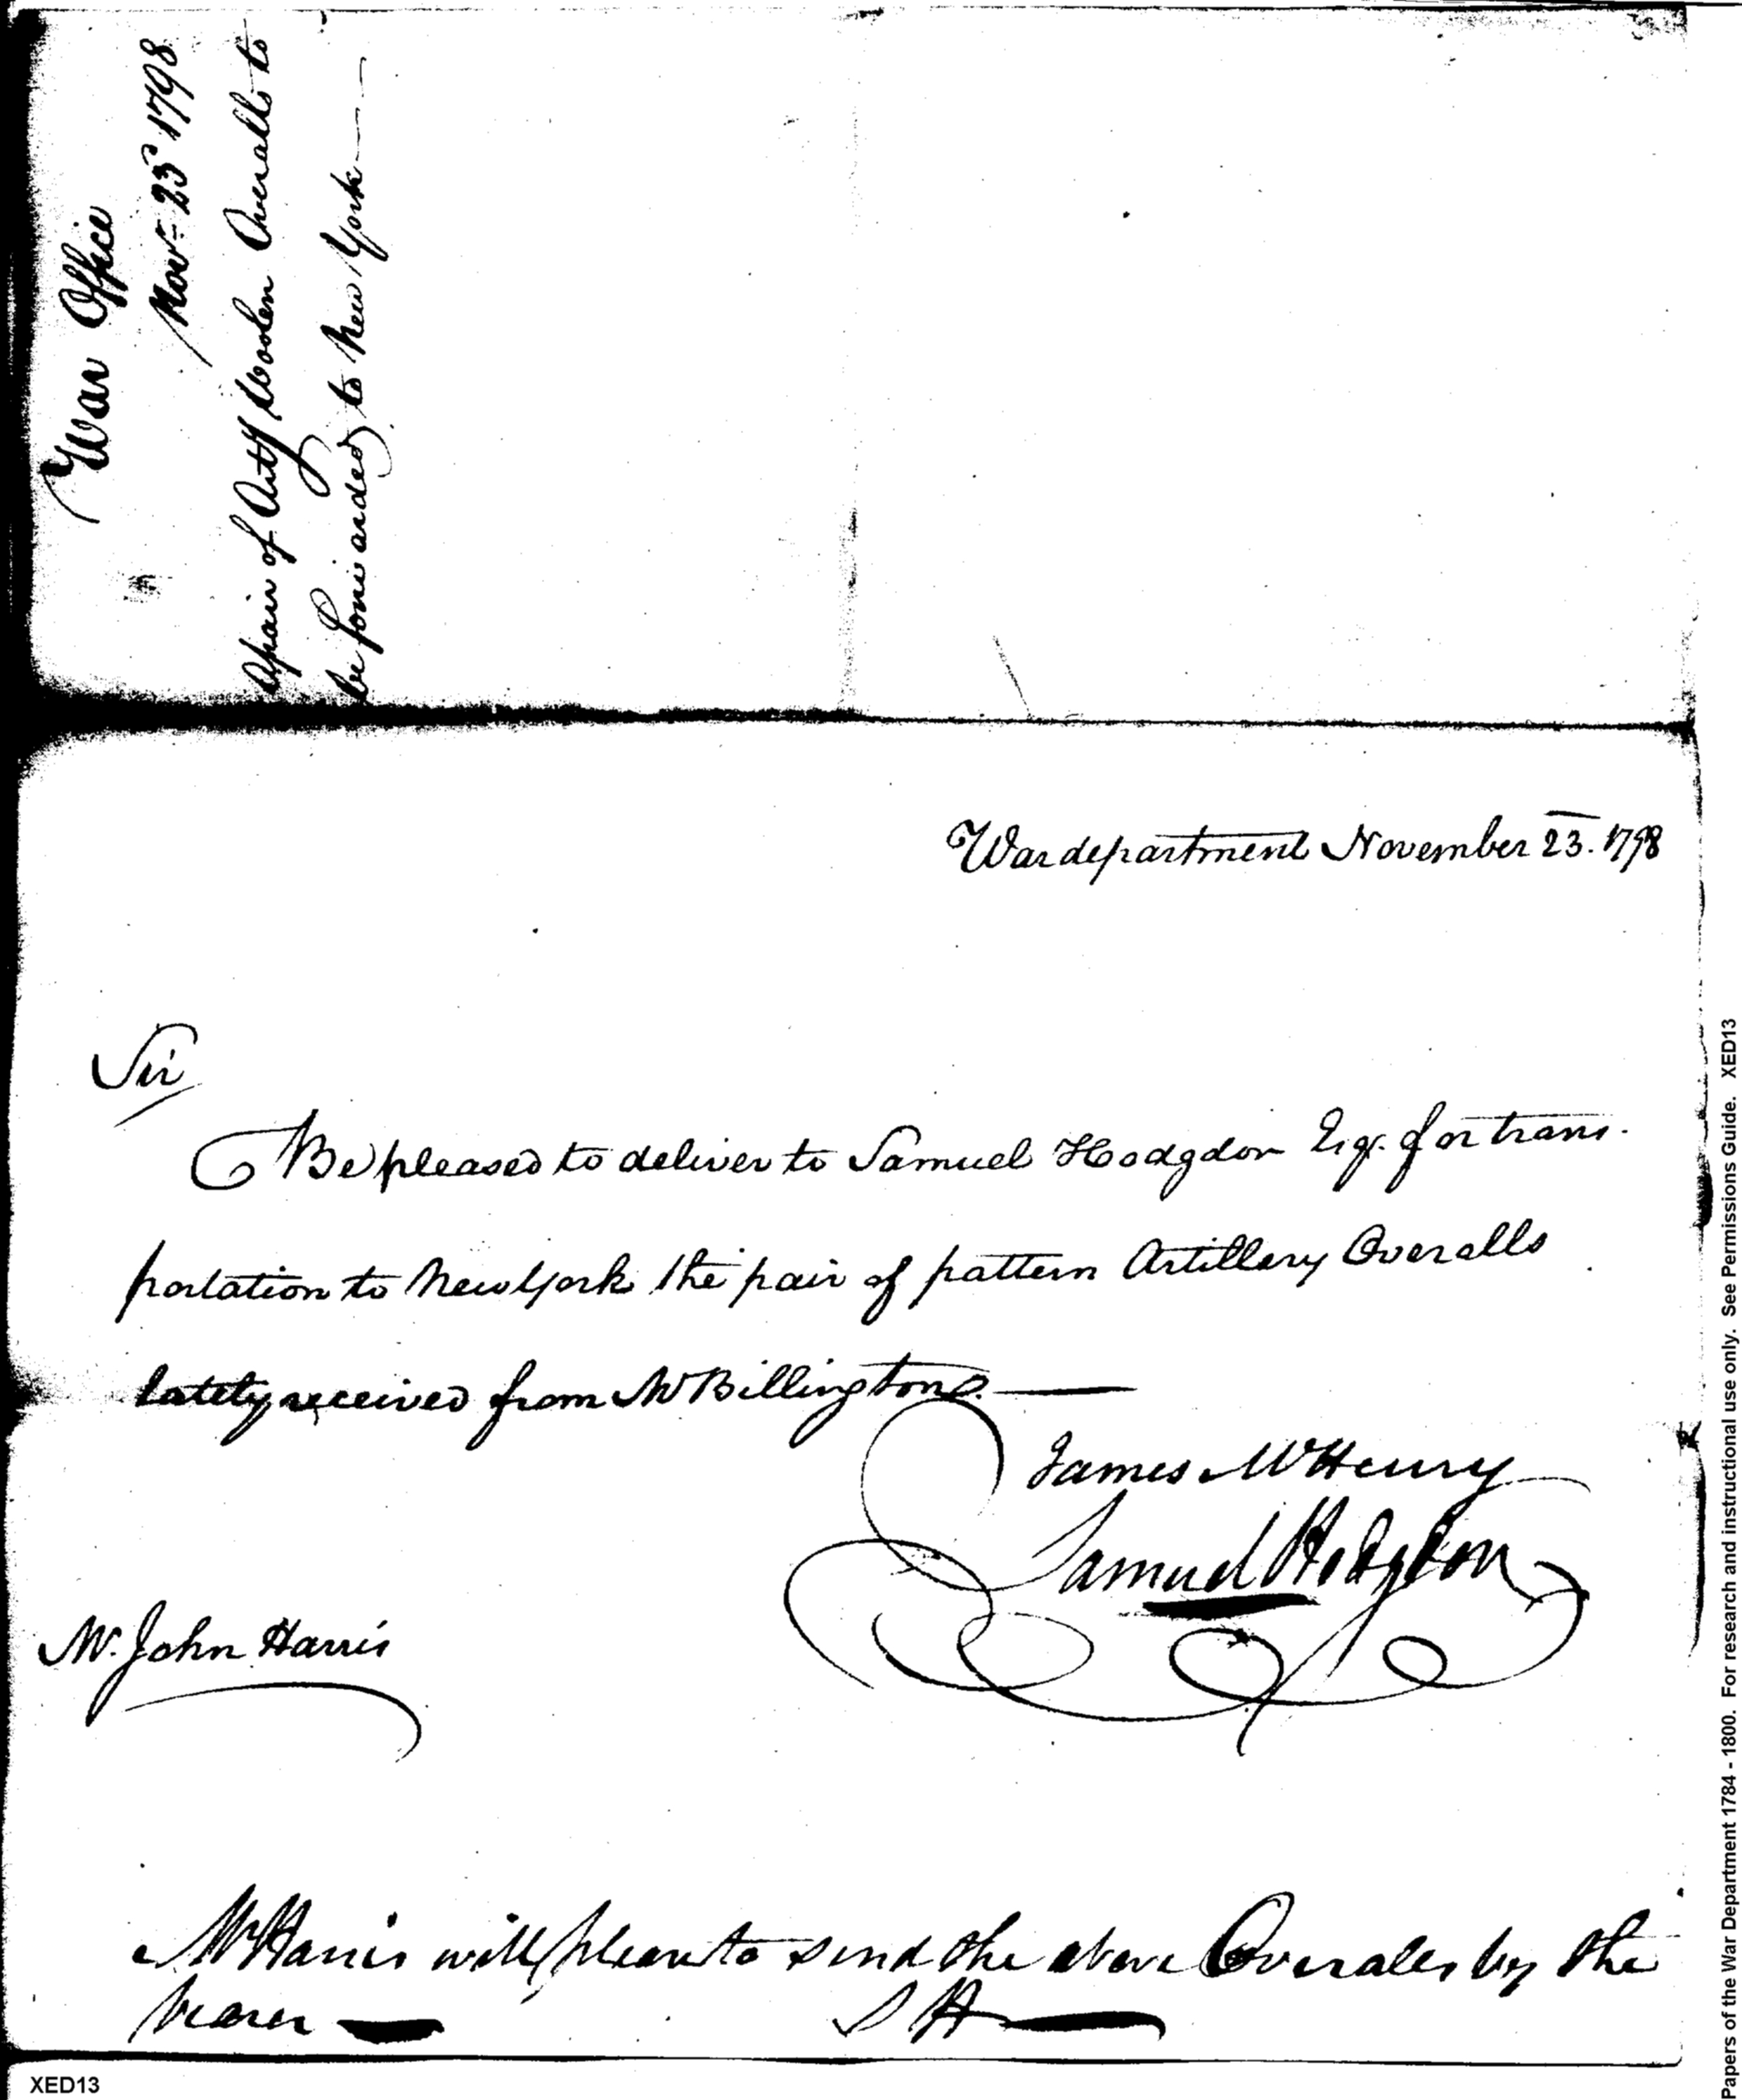 War Office
Novr 23 1798
Apair of Arty Woolen Overalls to
be forwarded to New York
War department November 23. 1798
Sir
Be pleased to deliver to Samuel Hodgdon Esqr. for trans-
portation to New York the pair of pattern Artillery Overalls
lately received from Mr Billington.
James McHenry
Samuel Hodgdon
Mr. John Harris
Mr Harris will please to send the above Overalls by the
bearer
S H
XED13
Papers of the War Department 1784 - 1800. For research and instructional use only. See Permissions Guide. XED13